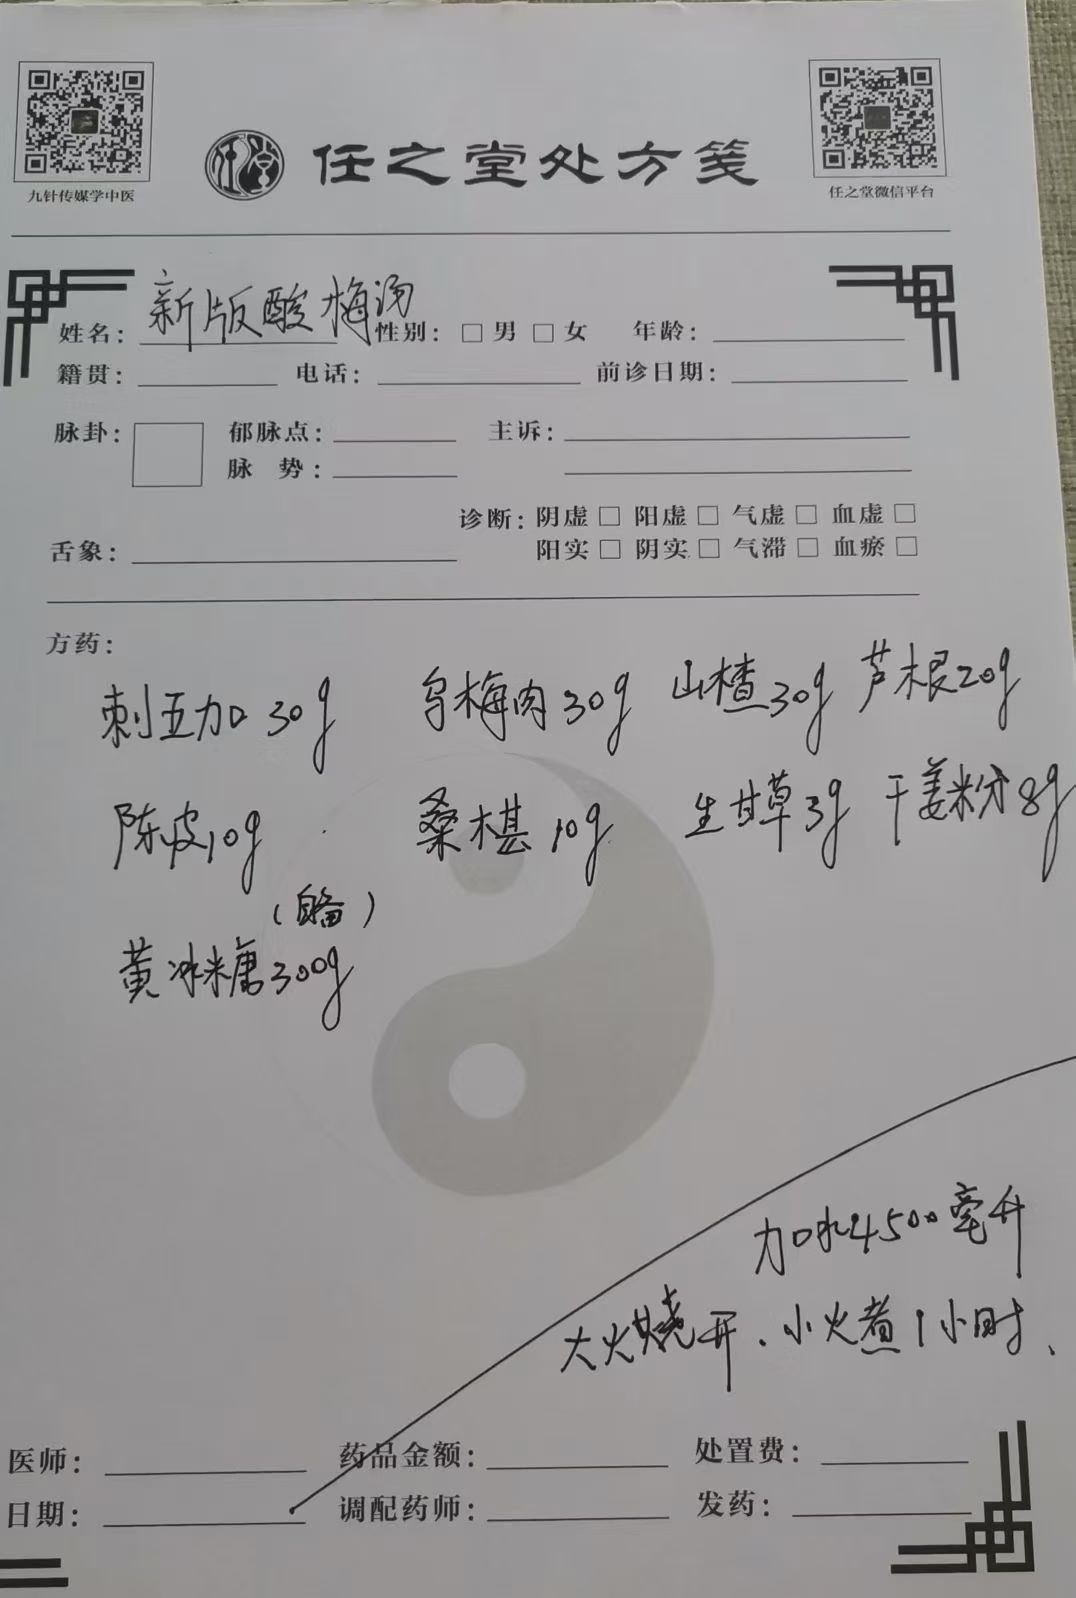 九针传媒学中医
任之堂处方笺
任之堂微信平台
姓名：新版酸梅汤 性别：□男 □女 年龄：
籍贯： 电话： 前诊日期：
脉卦： 郁脉点： 主诉：
脉 势：
诊断：阴虚□ 阳虚□ 气虚□ 血虚□
舌象： 阳实□ 阴实□ 气滞□ 血瘀□
方药：
刺五加30g 乌梅肉30g 山楂30g 芦根20g
陈皮10g 桑椹10g 生甘草3g 干姜粉8g
（自备）
黄冰糖300g
加水4500毫升
大火烧开、小火煮1小时、
医师： 药品金额： 处置费：
日期： 调配药师： 发药：